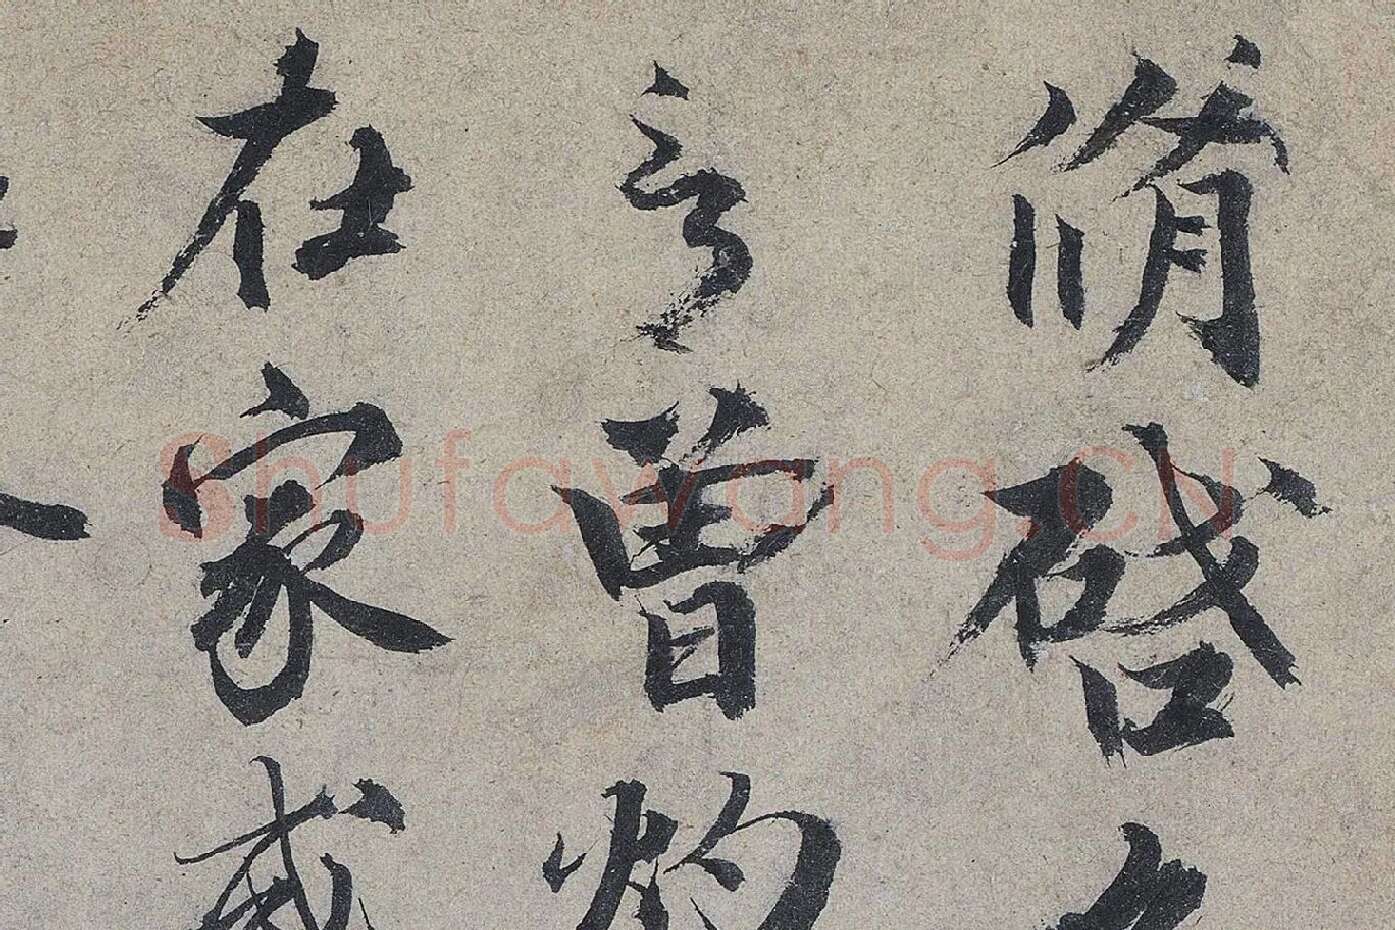 脩啓
言曾灼
在家或
Shufawang.cn